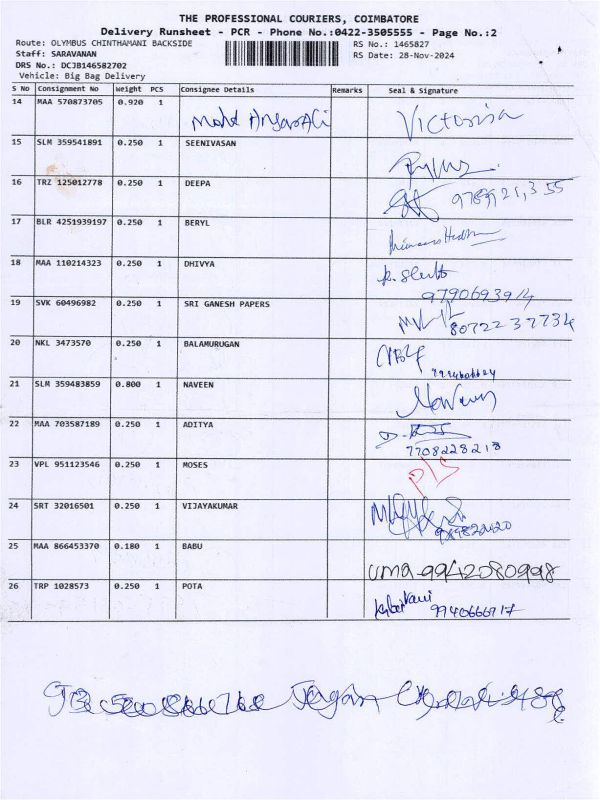 THE PROFESSIONAL COURIERS, COIMBATORE
Delivery Runsheet - PCR - Phone No.:0422-3505555 - Page No.:2
Route: OLYMBUS CHINTHAMANI BACKSIDE RS No.: 1465827
Staff: SARAVANAN RS Date: 28-Nov-2024
DRS No.: DCJB146582702
Vehicle: Big Bag Delivery
S No Consignment No Weight PCS Consignee Details Remarks Seal & Signature
14 MAA 570873705 0.920 1 Mohd AnsarAli Victoria
15 SLM 359541891 0.250 1 SEENIVASAN
16 TRZ 125012778 0.250 1 DEEPA
17 BLR 4251939197 0.250 1 BERYL
18 MAA 110214323 0.250 1 DHIVYA
9790693914
19 SVK 60496982 0.250 1 SRI GANESH PAPERS
8072237734
20 NKL 3473570 0.250 1 BALAMURUGAN
21 SLM 359483859 0.800 1 NAVEEN Naveen
22 MAA 703587189 0.250 1 ADITYA
7708228218
23 VPL 951123546 0.250 1 MOSES
24 SRT 32016501 0.250 1 VIJAYAKUMAR
25 MAA 866453370 0.180 1 BABU uma-9942080998
26 TRP 1028573 0.250 1 POTA 9940666717